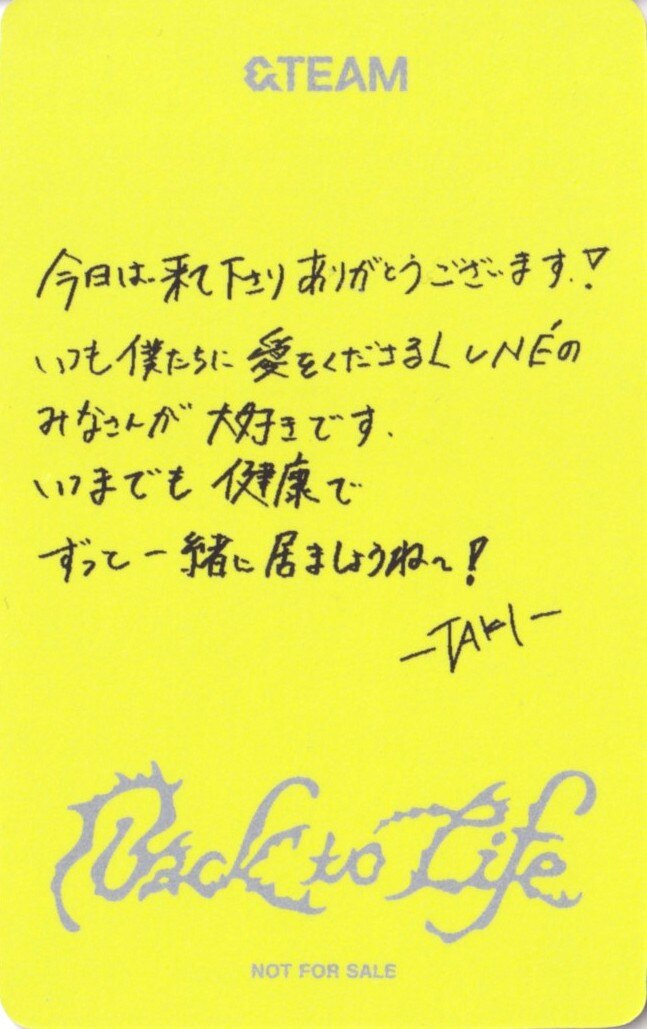 &TEAM
今日は来て下さりありがとうございます!
いつも僕たちに愛をくださるLUNÉの
みなさんが大好きです.
いつまでも健康で
ずっと一緒に居ましょうね~!
-TAKI-
Back to Life
NOT FOR SALE